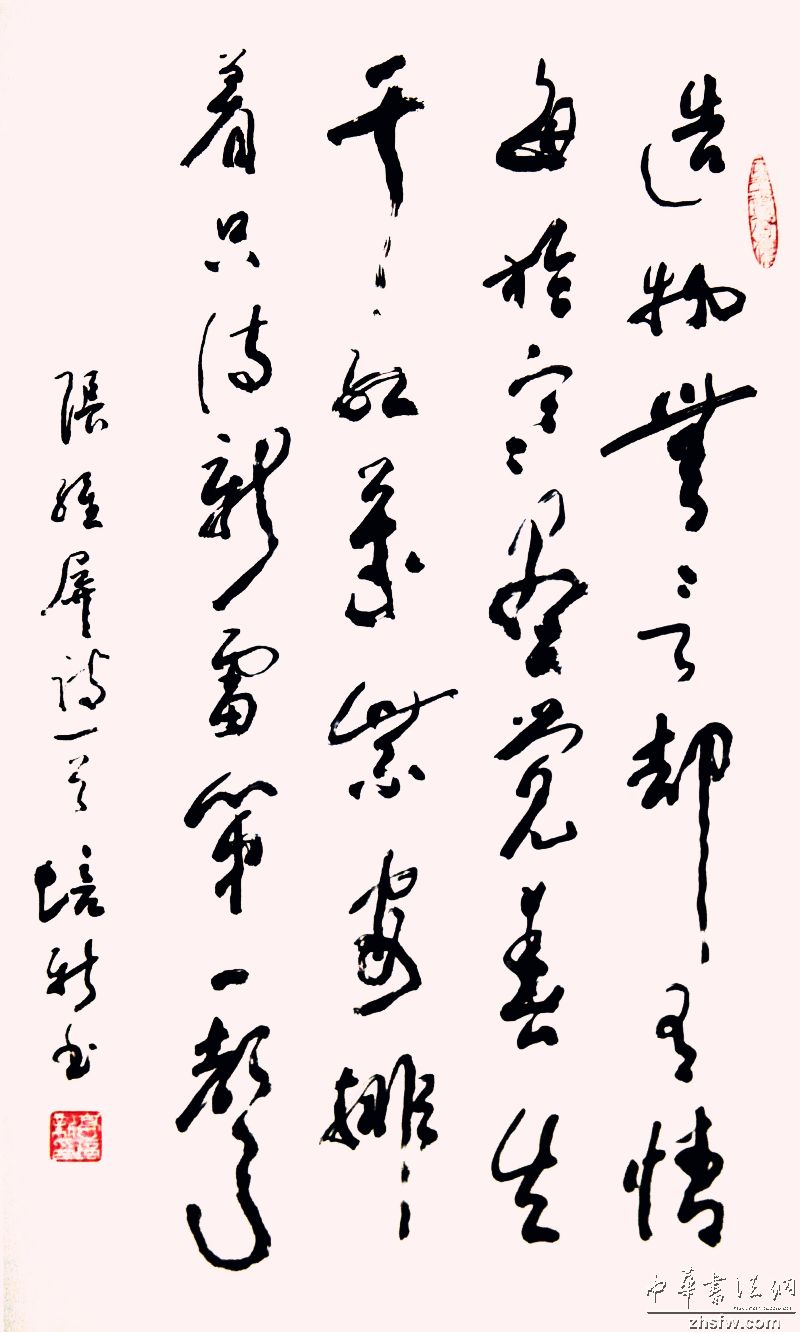 造物無言却有情
每於寒盡觉春生
千红萬紫安排
着只待新雷第一聲
張維屏诗一首 培新书
中華書法網
zhsfw.com